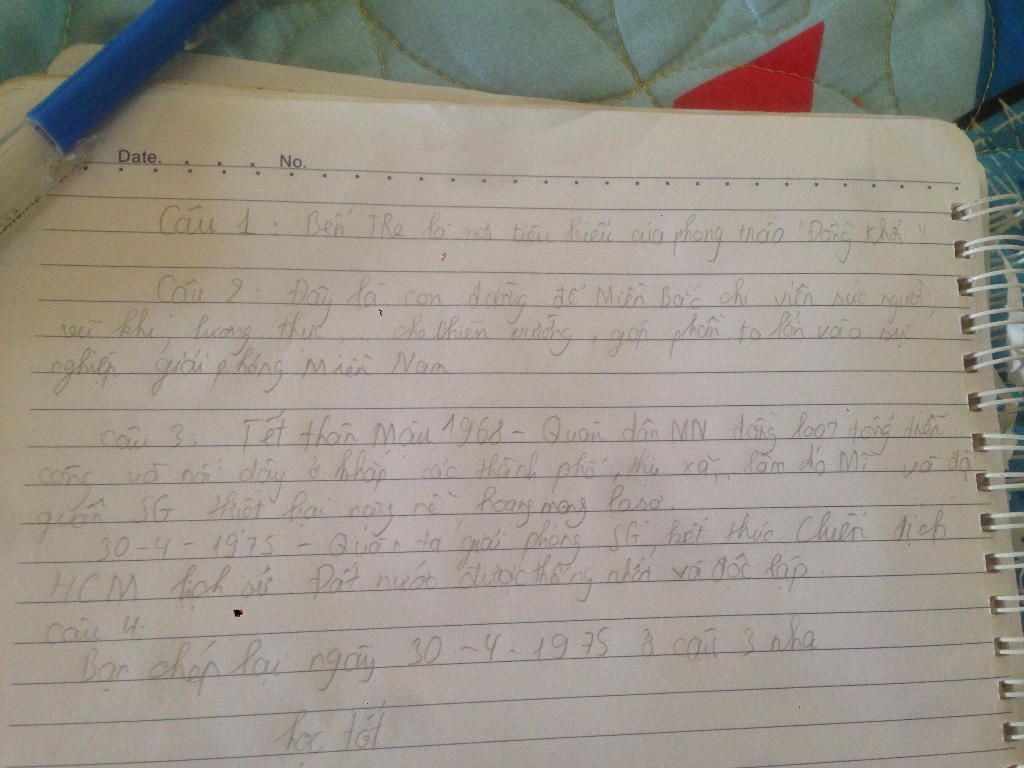 Date. No.
Câu 1: Bến TRe là nơi tiêu biểu của phong trào "Đồng khởi"
Câu 2: Đây là con đường để Miền Bắc chi viện sức người,
vũ khí, lương thực... cho chiến trường, góp phần to lớn vào sự
nghiệp giải phóng Miền Nam
câu 3: Tết thân Mậu 1968 - Quân dân MN đồng loạt tổng tiến
công và nổi dậy ở khắp các thành phố, thị xã,.. làm đọ Mĩ và độ
quân SG thiệt hại nặng nề, hoang mang lo sợ.
30-4-1975 - Quân ta giải phóng SG, kết thúc Chiến dịch
HCM lịch sử. Đất nước được thống nhất và độc lập.
câu 4:
Bạn chép lại ngày 30-4-1975 ở câu 3 nha
học tốt